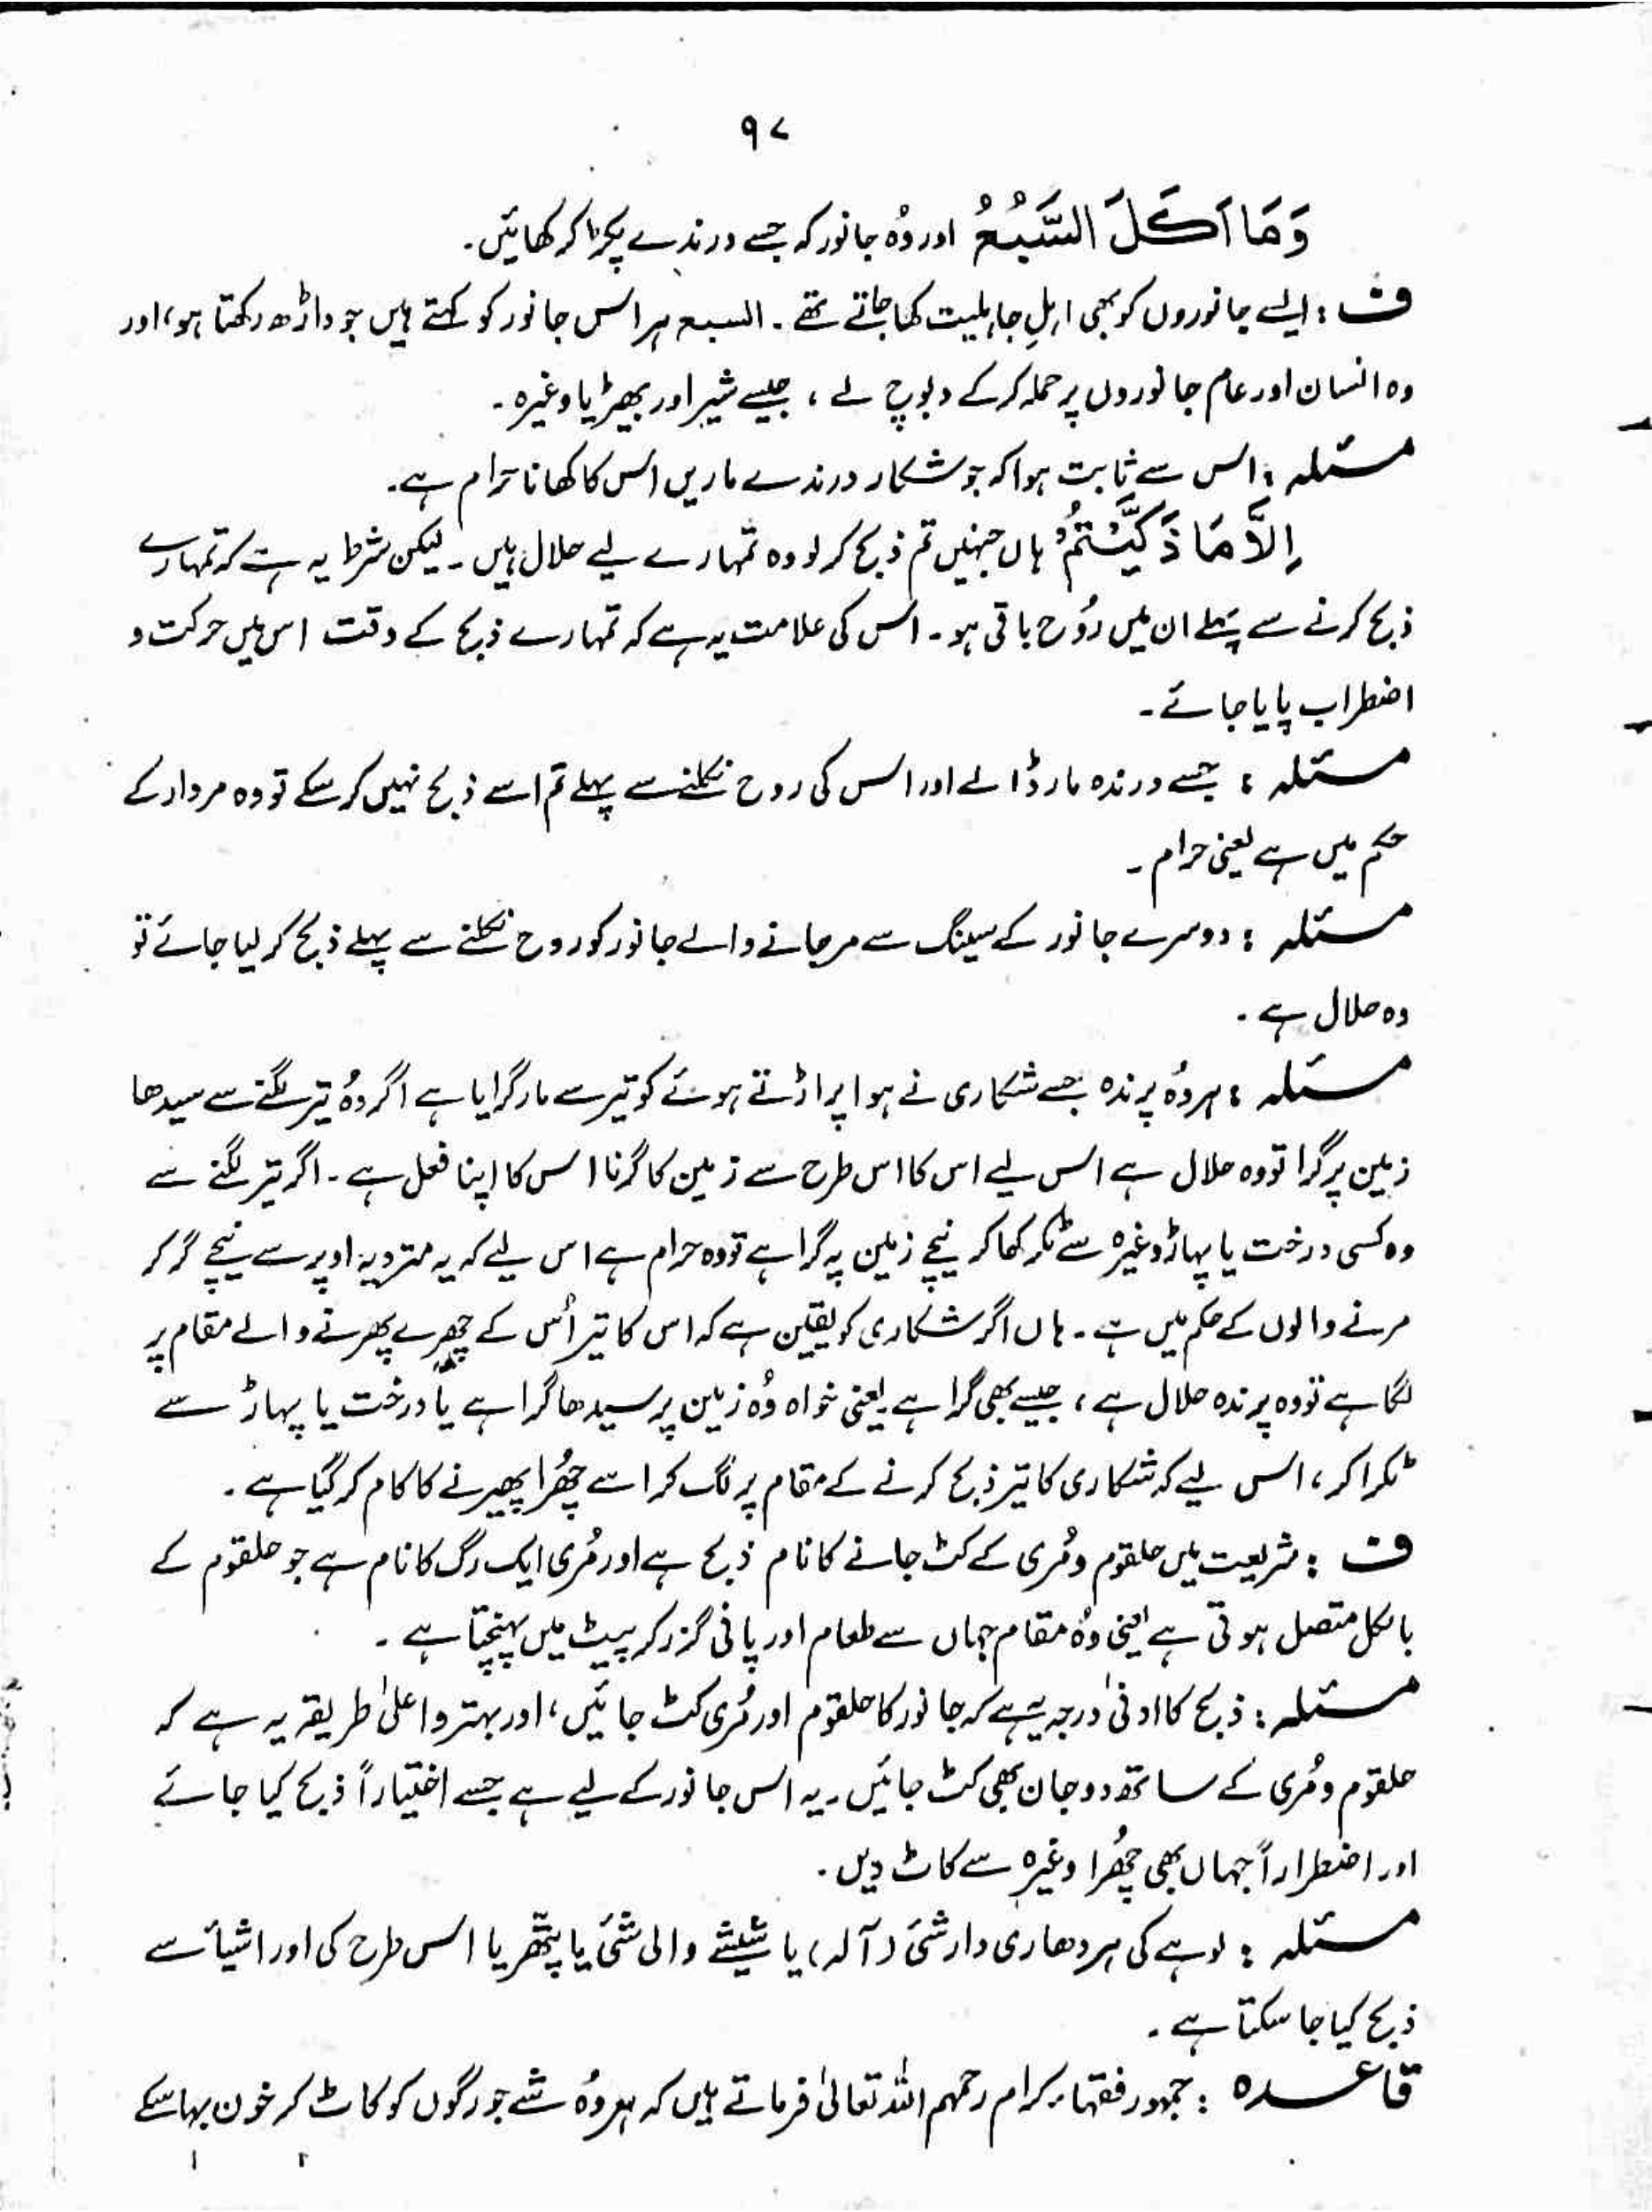 ۹۷
وَمَا اَكَلَ السَّبُعُ اور وُہ جانور کہ جسے درندے پکڑ کر کھائیں۔
ف : ایسے جانوروں کو بھی اہلِ جاہلیت کھا جاتے تھے ۔ السبع ہر اس جانور کو کہتے ہیں جو داڑھ رکھتا ہو، اور
وہ انسان اور عام جانوروں پر حملہ کرکے دبوچ لے ، جیسے شیر اور بھیڑیا وغیرہ ۔
مسئلہ : اس سے ثابت ہوا کہ جو شکار درندے ماریں اس کا کھانا حرام ہے۔
اِلَّا مَا ذَكَّيْتُمْ ہاں جنہیں تم ذبح کر لو وہ تمہارے لیے حلال ہیں ۔ لیکن شرط یہ ہے کہ تمہارے
ذبح کرنے سے پہلے ان میں رُوح باقی ہو ۔ اس کی علامت یہ ہے کہ تمہارے ذبح کے وقت اس میں حرکت و
اضطراب پایا جائے ۔
مسئلہ : جسے درندہ مار ڈالے اور اس کی روح نکلنے سے پہلے تم اسے ذبح نہیں کر سکے تو وہ مردار کے
حکم میں ہے یعنی حرام ۔
مسئلہ : دوسرے جانور کے سینگ سے مر جانے والے جانور کو روح نکلنے سے پہلے ذبح کر لیا جائے تو
وہ حلال ہے ۔
مسئلہ : ہر وُہ پرندہ جسے شکاری نے ہوا پر اڑتے ہوئے کو تیر سے مار گرایا ہے اگر وُہ تیر لگنے سے سیدھا
زمین پر گرا تو وہ حلال ہے اس لیے اس کا اس طرح سے زمین کا گرنا اس کا اپنا فعل ہے ۔ اگر تیر لگنے سے
وہ کسی درخت یا پہاڑ وغیرہ سے ٹکر کھا کر نیچے زمین پہ گرا ہے تو وہ حرام ہے اس لیے کہ یہ متردیہ اوپر سے نیچے گر کر
مرنے والوں کے حکم میں ہے ۔ ہاں اگر شکاری کو یقین ہے کہ اس کا تیر اُس کے چھرے پھرنے والے مقام پر
لگا ہے تو وہ پرندہ حلال ہے ، جیسے بھی گرا ہے یعنی خواہ وُہ زمین پر سیدھا گرا ہے یا درخت یا پہاڑ سے
ٹکرا کر ، اس لیے کہ شکاری کا تیر ذبح کرنے کے مقام پر لگ کر اسے چھُرا پھیرنے کا کام کر گیا ہے ۔
ف : شریعت میں حلقوم و مُری کے کٹ جانے کا نام ذبح ہے اور مُری ایک رگ کا نام ہے جو حلقوم کے
بالکل متصل ہوتی ہے یعنی وُہ مقام جہاں سے طعام اور پانی گزر کر پیٹ میں پہنچتا ہے ۔
مسئلہ : ذبح کا ادنیٰ درجہ یہ ہے کہ جانور کا حلقوم اور مُری کٹ جائیں ، اور بہتر و اعلیٰ طریقہ یہ ہے کہ
حلقوم و مُری کے ساتھ دوجان بھی کٹ جائیں ۔ یہ اس جانور کے لیے ہے جسے اختیاراً ذبح کیا جائے
اور اضطراراً جہاں بھی چھُرا وغیرہ سے کاٹ دیں ۔
مسئلہ : لوہے کی ہر دھاری دار شئ (آلہ) یا شیشے والی شئ یا پتھر یا اس طرح کی اور اشیأ سے
ذبح کیا جا سکتا ہے ۔
قاعدہ : جمہور فقہاء کرام رحمہم اللہ تعالیٰ فرماتے ہیں کہ ہر وُہ شے جو رگوں کو کاٹ کر خون بہا سکے